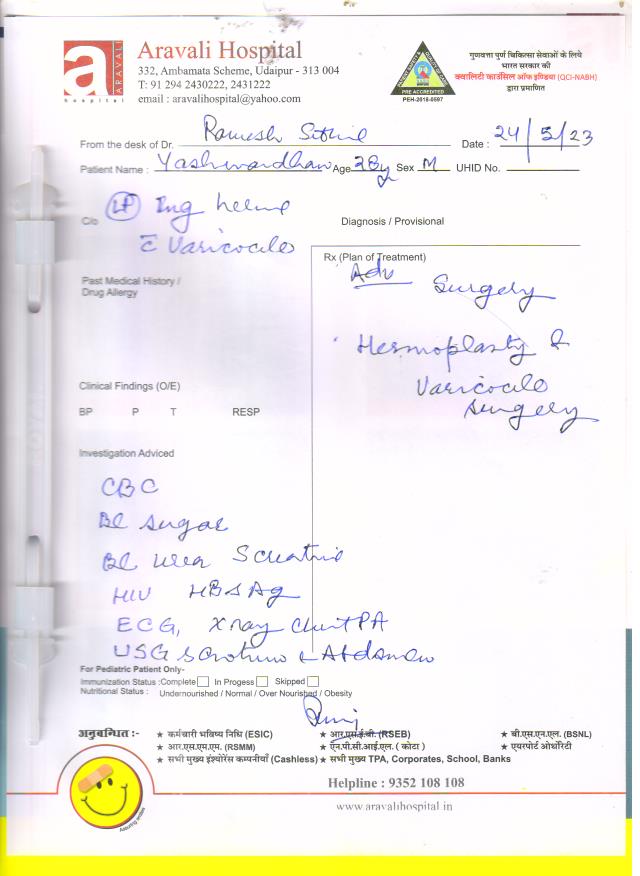 a ARAVALI
hospital
Aravali Hospital
332, Ambamata Scheme, Udaipur - 313 004
T: 91 294 2430222, 2431222
email : aravalihospital@yahoo.com
PRE ACCREDITED
PEH-2018-0597
गुणवत्ता पुर्ण चिकित्सा सेवाओं के लिये
भारत सरकार की
क्वालिटि काउंसिल ऑफ इण्डिया (QCI-NABH)
द्वारा प्रमाणित
From the desk of Dr. Ramesh Date : 24/5/23
Patient Name : Yashwardhan Age 28y Sex M UHID No.
C/o Ing
c̄ Varicocile
Diagnosis / Provisional
Rx (Plan of Treatment)
Adv Surgery
Past Medical History /
Drug Allergy
Hernioplasty &
Varicocile
surgery
Clinical Findings (O/E)
BP P T RESP
Investigation Adviced
CBC
Bl sugar
Bl urea
HIV HBSAg
ECG, Xray Chest PA
USG Scrotum + Abdomen
For Pediatric Patient Only-
Immunization Status : Complete In Progess Skipped
Nutritional Status : Undernourished / Normal / Over Nourished / Obesity
अनुबन्धित :- ★ कर्मचारी भविष्य निधि (ESIC) ★ आर.एस.ई.बी. (RSEB) ★ बी.एस.एन.एल. (BSNL)
★ आर.एस.एम.एम. (RSMM) ★ एन.पी.सी.आई.एल. ( कोटा ) ★ एयरपोर्ट ऑथोरिटी
★ सभी मुख्य इंश्योरेंस कम्पनीयाँ (Cashless) ★ सभी मुख्य TPA, Corporates, School, Banks
Helpline : 9352 108 108
www.aravalihospital.in
Assuring smiles